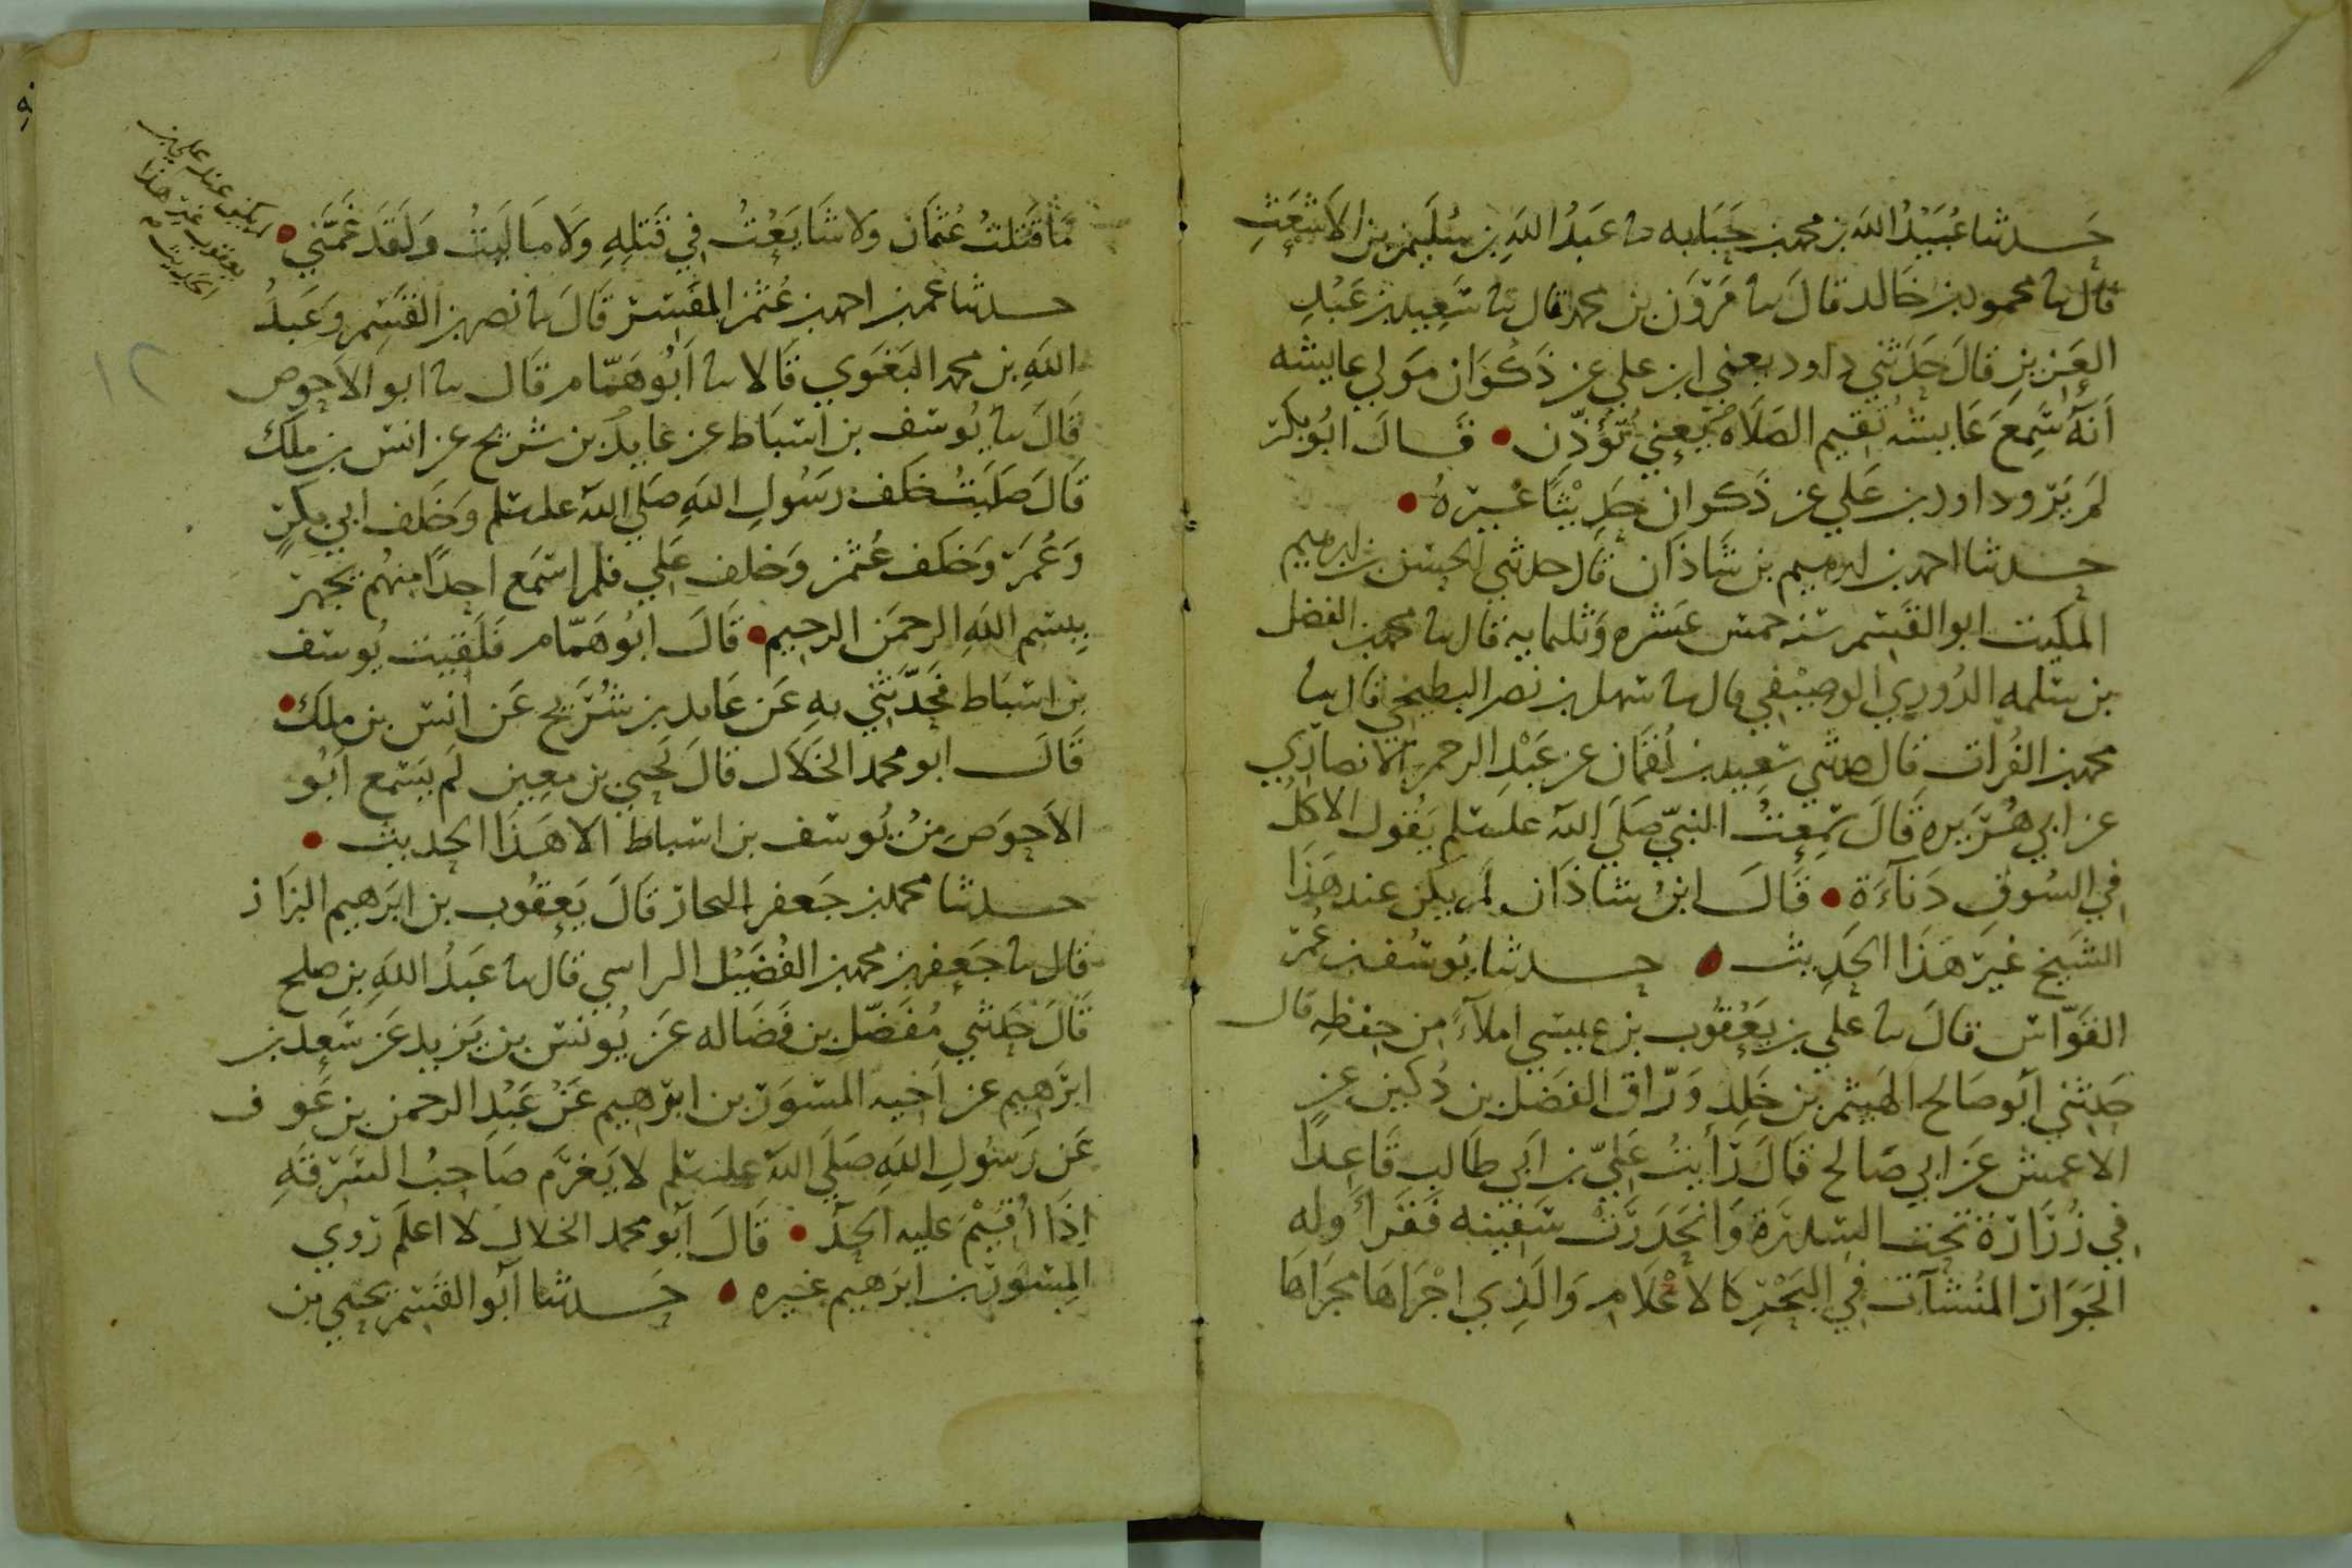 حدثنا عُبَيْدُ الله بن محمد بن حَبَابه نا عَبدُ اللهِ بن سُلَيمن بن الاشعَثِ
قال نا محمود بن خالد قالَ نا مَرْوَن بن محمد قال نا سَعِيد بن عَبْدِ
العَزيزِ قالَ حَدَثَني داود يعني ابن علي عن ذَكْوَان مَولي عايشه
أنَهُ سَمِعَ عَايشه تُقيم الصَلَاه يَعني تُؤَذِّن • قال ابُو بَكر
لَم يَرو داود بن عَلي عن ذَكوان حَدِيْثاً غيره •
حدثنا احمد بن ابرهيم بن شَاذَان قَال حدثني الحسَن بن ابرهيم
ابو القسم سنه خمس عَشره وَثلثمايه قال نا محمد بن الفضل
بن سَلمه الدُوري الوصيفي قال نا سهل بن نصر البطيخي قال نا
محمد بن الفُرات قال حدثني سَعِيد بن لُقمَان عن عَبْدِ الرحمن الانصاري
عن ابي هُرَيره قالَ سَمِعتُ النبيّ صَلَي اللهُ عليه وسَلم يَقُول الاكلُ
في السُوقِ دَنآءَة • قالَ ابنُ شاذَان لم يكن عند هَذَا
الشَيخ غيرَ هَذا الحَدِيث • حدثنا يُوسُف بن عُمر
القَوَّاس قالَ نا علي بن يَعْقُوب بن عيسي املآءً من حِفظِهِ قال
حدثني ابُو صَالح الهَيثم بن خَلِد وَرّاق الفَضل بن دُكين عن
الاعمش عَن ابي صَالح قالَ رَأيتُ عَليّ بن ابَي طالب قَاعِداً
في زُرَارَة تحت السِدرَة وَانحَدَرَتْ سَفينه فَقَرأ وله
الجَوَار المُنشآت في البَحْر كالاعْلام وَالَذِي اجْرَاهَا مجرَاها
مَا قَتَلتُ عُثمَان ولا شَايَعْتُ في قَتلِهِ وَلا مَالَيتُ وَلَقَد غَمَّني •
لم يكن عند علي بن
يعقوب غير هذا
الحديث
حدثنا عمر بن احمد بن عُثمن المفَسّر قَالَ نا نصر بن القسِم وعَبدُ
اللهِ بن محمد البَغَوي قَالا نا أبُو هَمّام قال نا ابو الاَحوص
قَالَ نا يُوسف بن اسبَاط عن عَايذ بن شريح عن انس بن ملك
قَالَ صَليتُ خَلف رَسُولِ اللهِ صَلي اللهُ عليه وسلم وَخَلف ابي بكرٍ
وَعُمَر وَخلَف عُثمن وَخلف عَلي فلم اسمَع احداً منهُم يجهر
بِبسمِ اللهِ الرحمَن الرحيم • قَالَ ابُو هَمّام فَلَقيت يُوسف
بن اسبَاط فحَدَّثَني بهِ عَن عَايذ بن شُرَيح عَن انَس بن ملك •
قَالَ ابو محمد الخلال قالَ يَحيي بن معين لَم يَسمع ابُو
الاَحوَص مِن يُوسف بن اسباط الا هَذَا الحديث •
حدثنا محمد بن جَعفر النجار قَالَ يَعقُوب بن ابرَهيم البزَاز
قال نا جَعفر بن محمد بن الفُضَيْل الراسي قال نا عَبدُ اللهِ بن صلح
قَالَ حَدثني مُفَضّل بن فَضَاله عَن يُونس بن يَزيد عَن سَعد بن
ابرَهيم عن اَخيه المسوَر بن ابرَهيم عَنْ عَبْدِ الرحمن بن عَوف
عَن رَسُولِ اللهِ صَلَي اللهُ عليه وسلم لا يَغرَم صَاحِبُ السَرقَهِ
اِذَا اُقيْمَ عليه الحَدّ • قَالَ ابُو محمد الخلال لا اعلَم رَوي
المِسوَر بن ابرَهيم غيره • حَدثنا ابُو القَسم يحيي بن
١٢